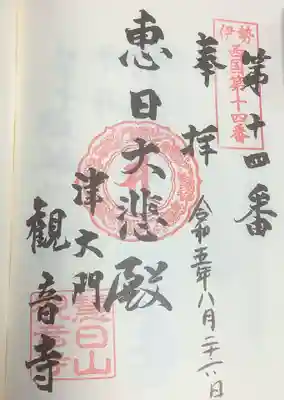 伊勢
西国第十四番
第十四番
奉拝
令和五年八月二十六日
恵日大悲殿
津大門
観音寺